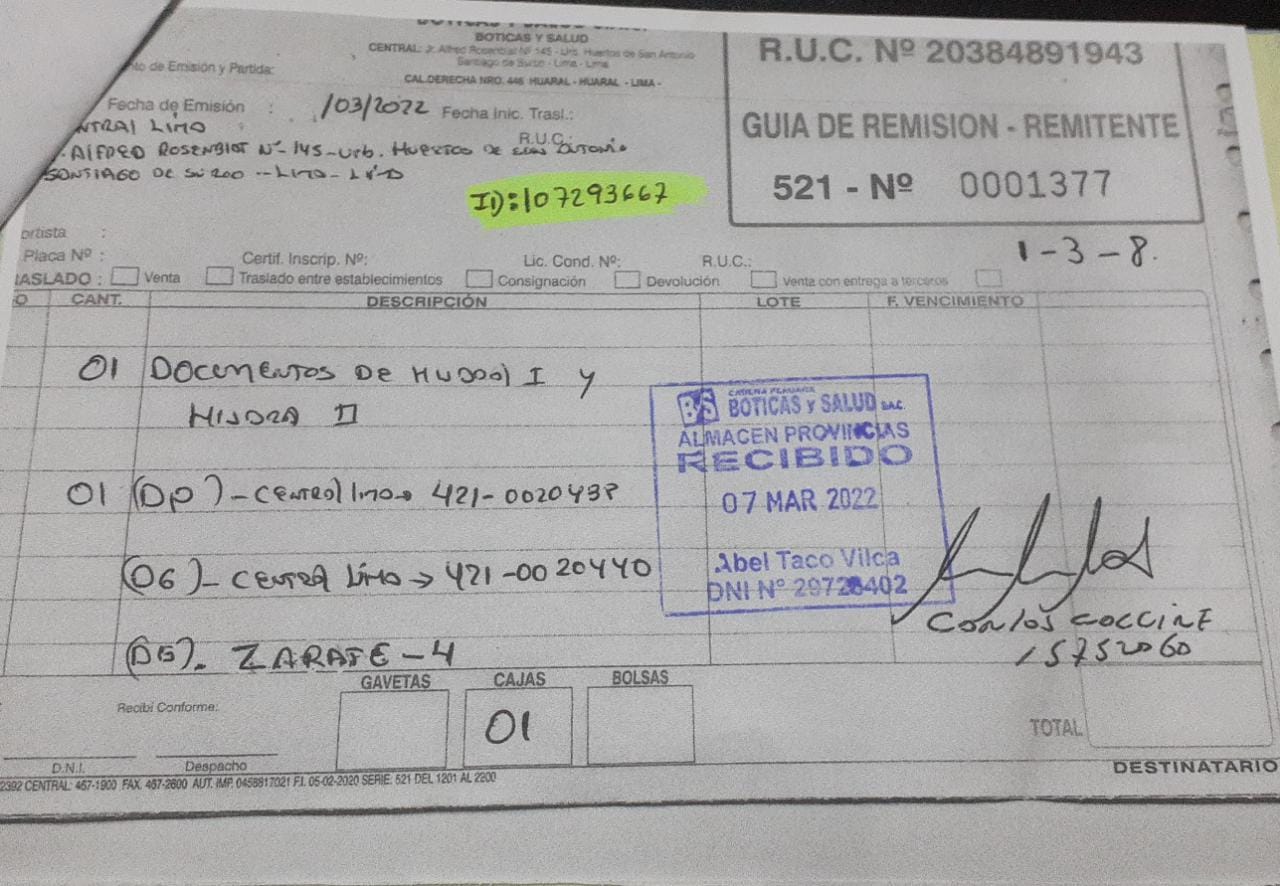 BOTICAS Y SALUD
CENTRAL: Jr. Alfred Rosenblat Nº 145 - Urb. Huertos de San Antonio
Santiago de Surco - Lima - Lima
CAL.DERECHA NRO. 446 HUARAL - HUARAL - LIMA -
R.U.C. Nº 20384891943
GUIA DE REMISION - REMITENTE
521 - Nº 0001377
nto de Emisión y Partida:
Fecha de Emisión : /03/2022 Fecha Inic. Trasl.:
NTRAL LIMA
R.U.C.:
ALFRED ROSENBLAT Nº 145 - Urb. HUERTOS DE SAN ANTONIO
SANTIAGO DE SURCO - LIMA - LIMA
ID:107293667
ortista :
Placa Nº : Certif. Inscrip. Nº: Lic. Cond. Nº: R.U.C.:
1-3-8.
RASLADO : Venta Traslado entre establecimientos Consignación Devolución Venta con entrega a terceros
O CANT. DESCRIPCIÓN LOTE F. VENCIMIENTO
01 DOCUMENTOS DE HUARAL I Y
HUARAL II
01 (DP) - CENTRAL LIMA → 421-0020438
(OG) - CENTRAL LIMA → 421-0020440
(DE). ZARATE - 4
CADENA PERUANA
BS BOTICAS y SALUD SAC.
ALMACEN PROVINCIAS
RECIBIDO
07 MAR 2022
Abel Taco Vilca
DNI Nº 29728402
15752060
GAVETAS CAJAS BOLSAS
01
Recibí Conforme:
TOTAL
D.N.I. Despacho
DESTINATARIO
2392 CENTRAL: 467-1900 FAX. 467-2600 AUT. IMP. 0458817021 F.I. 05-02-2020 SERIE: 521 DEL 1201 AL 2200